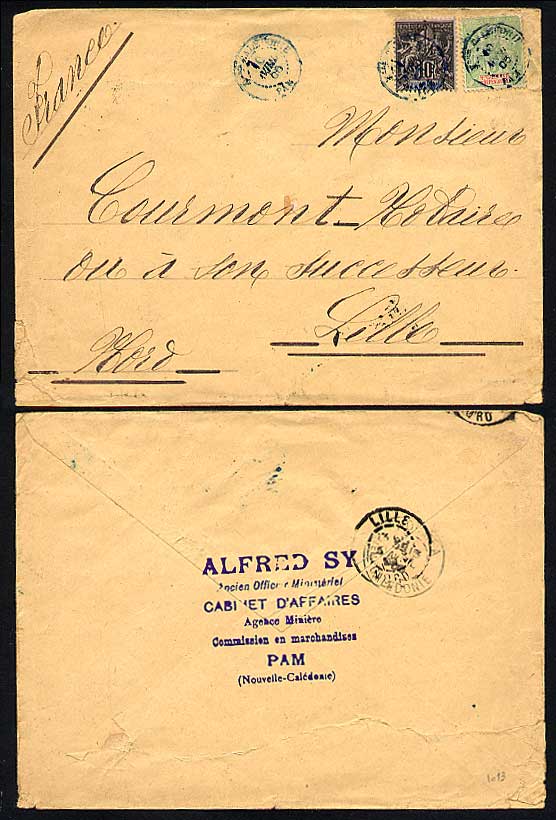 France
10
Monsieur
Courmont_Notaire
ou à son successeur.
Lille
Nord
LILLE
NORD
ALFRED SY
Ancien Officier Ministériel
CABINET D'AFFAIRES
Agence Minière
Commission en marchandises
PAM
(Nouvelle-Calédonie)
1013